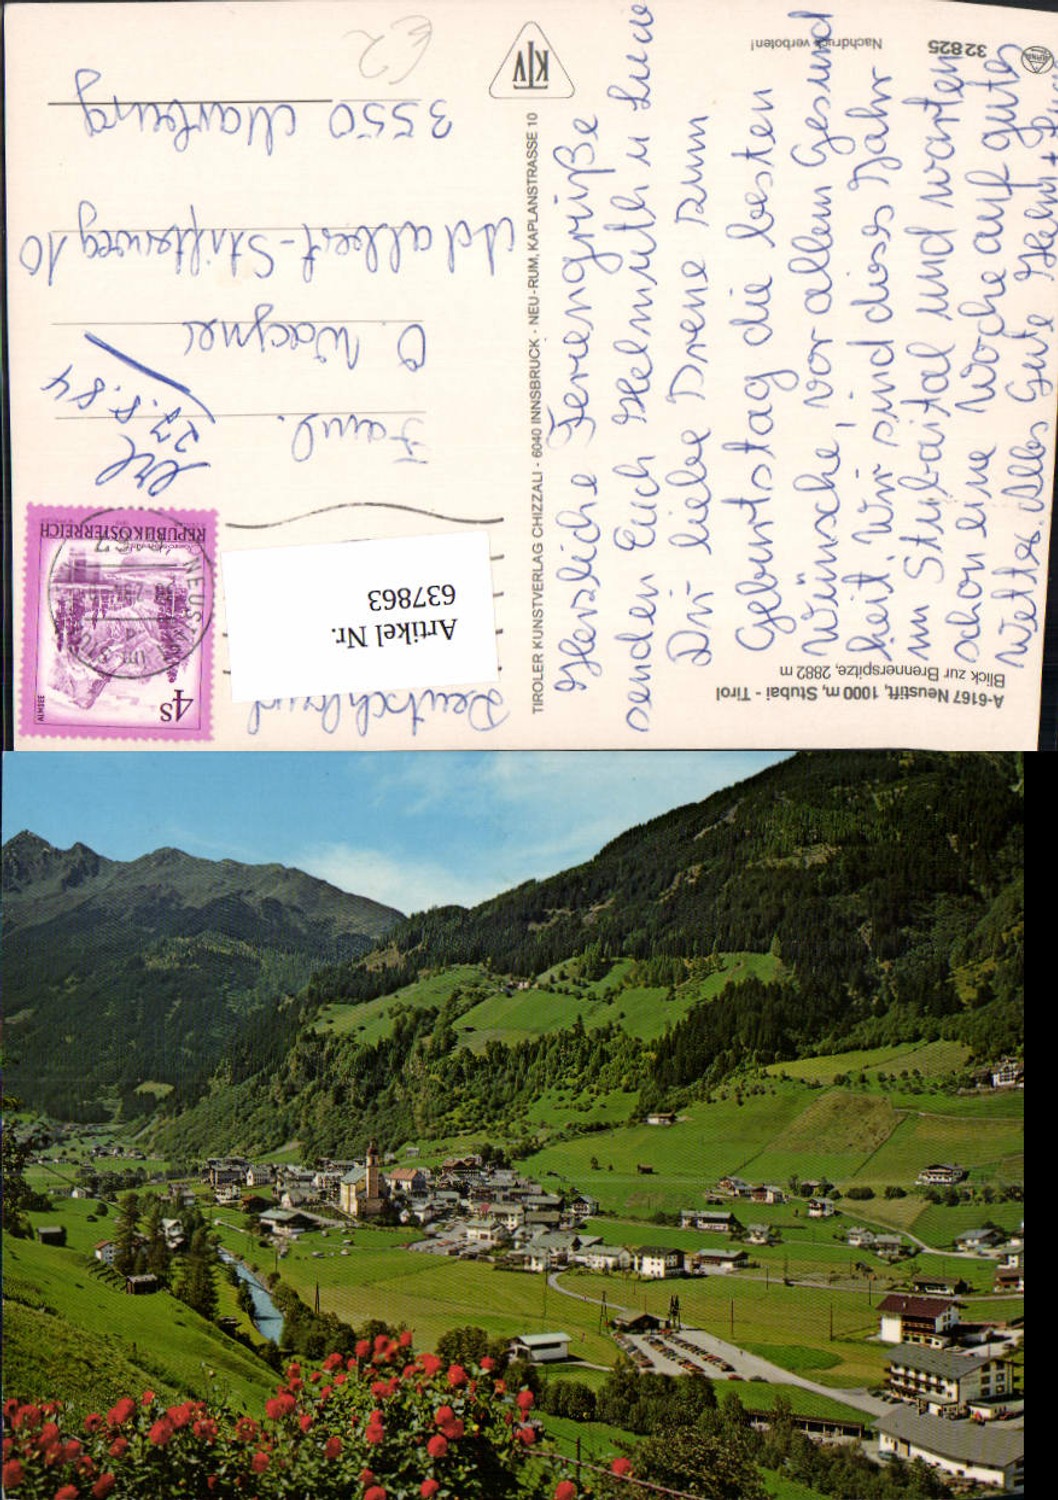 A-6167 Neustift, 1000 m, Stubai - Tirol
Blick zur Brennerspitze, 2882 m
32 825
Nachdruck verboten!
Herzliche Feriengrüße
senden Euch Helmuth u Luce
Dir liebe Irene zum
Geburtstag die besten
Wünsche, vor allem Gesund
heit. Wir sind dies Jahr
im Stubaital und warten
schon eine Woche auf gutes
Wetter. Alles Gute Helm +
TIROLER KUNSTVERLAG CHIZZALI · 6040 INNSBRUCK · NEU-RUM, KAPLANSTRASSE 10
KTV
4S
ALMSEE
REPUBLIK ÖSTERREICH
NEUSTIFT
Artikel Nr.
637863
erl
27.8.84
Faml.
O Wagner
Adalbert-Stifterweg 10
3550 Marburg
Deutschland
€2